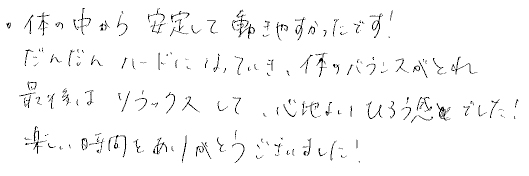 。体の中から 安定して 動きやすかったです!
だんだん ハードになっていき、体のバランスがとれ
最後は リラックス して、心地よい ひろう感 でした!
楽しい時間をありがとうございました!